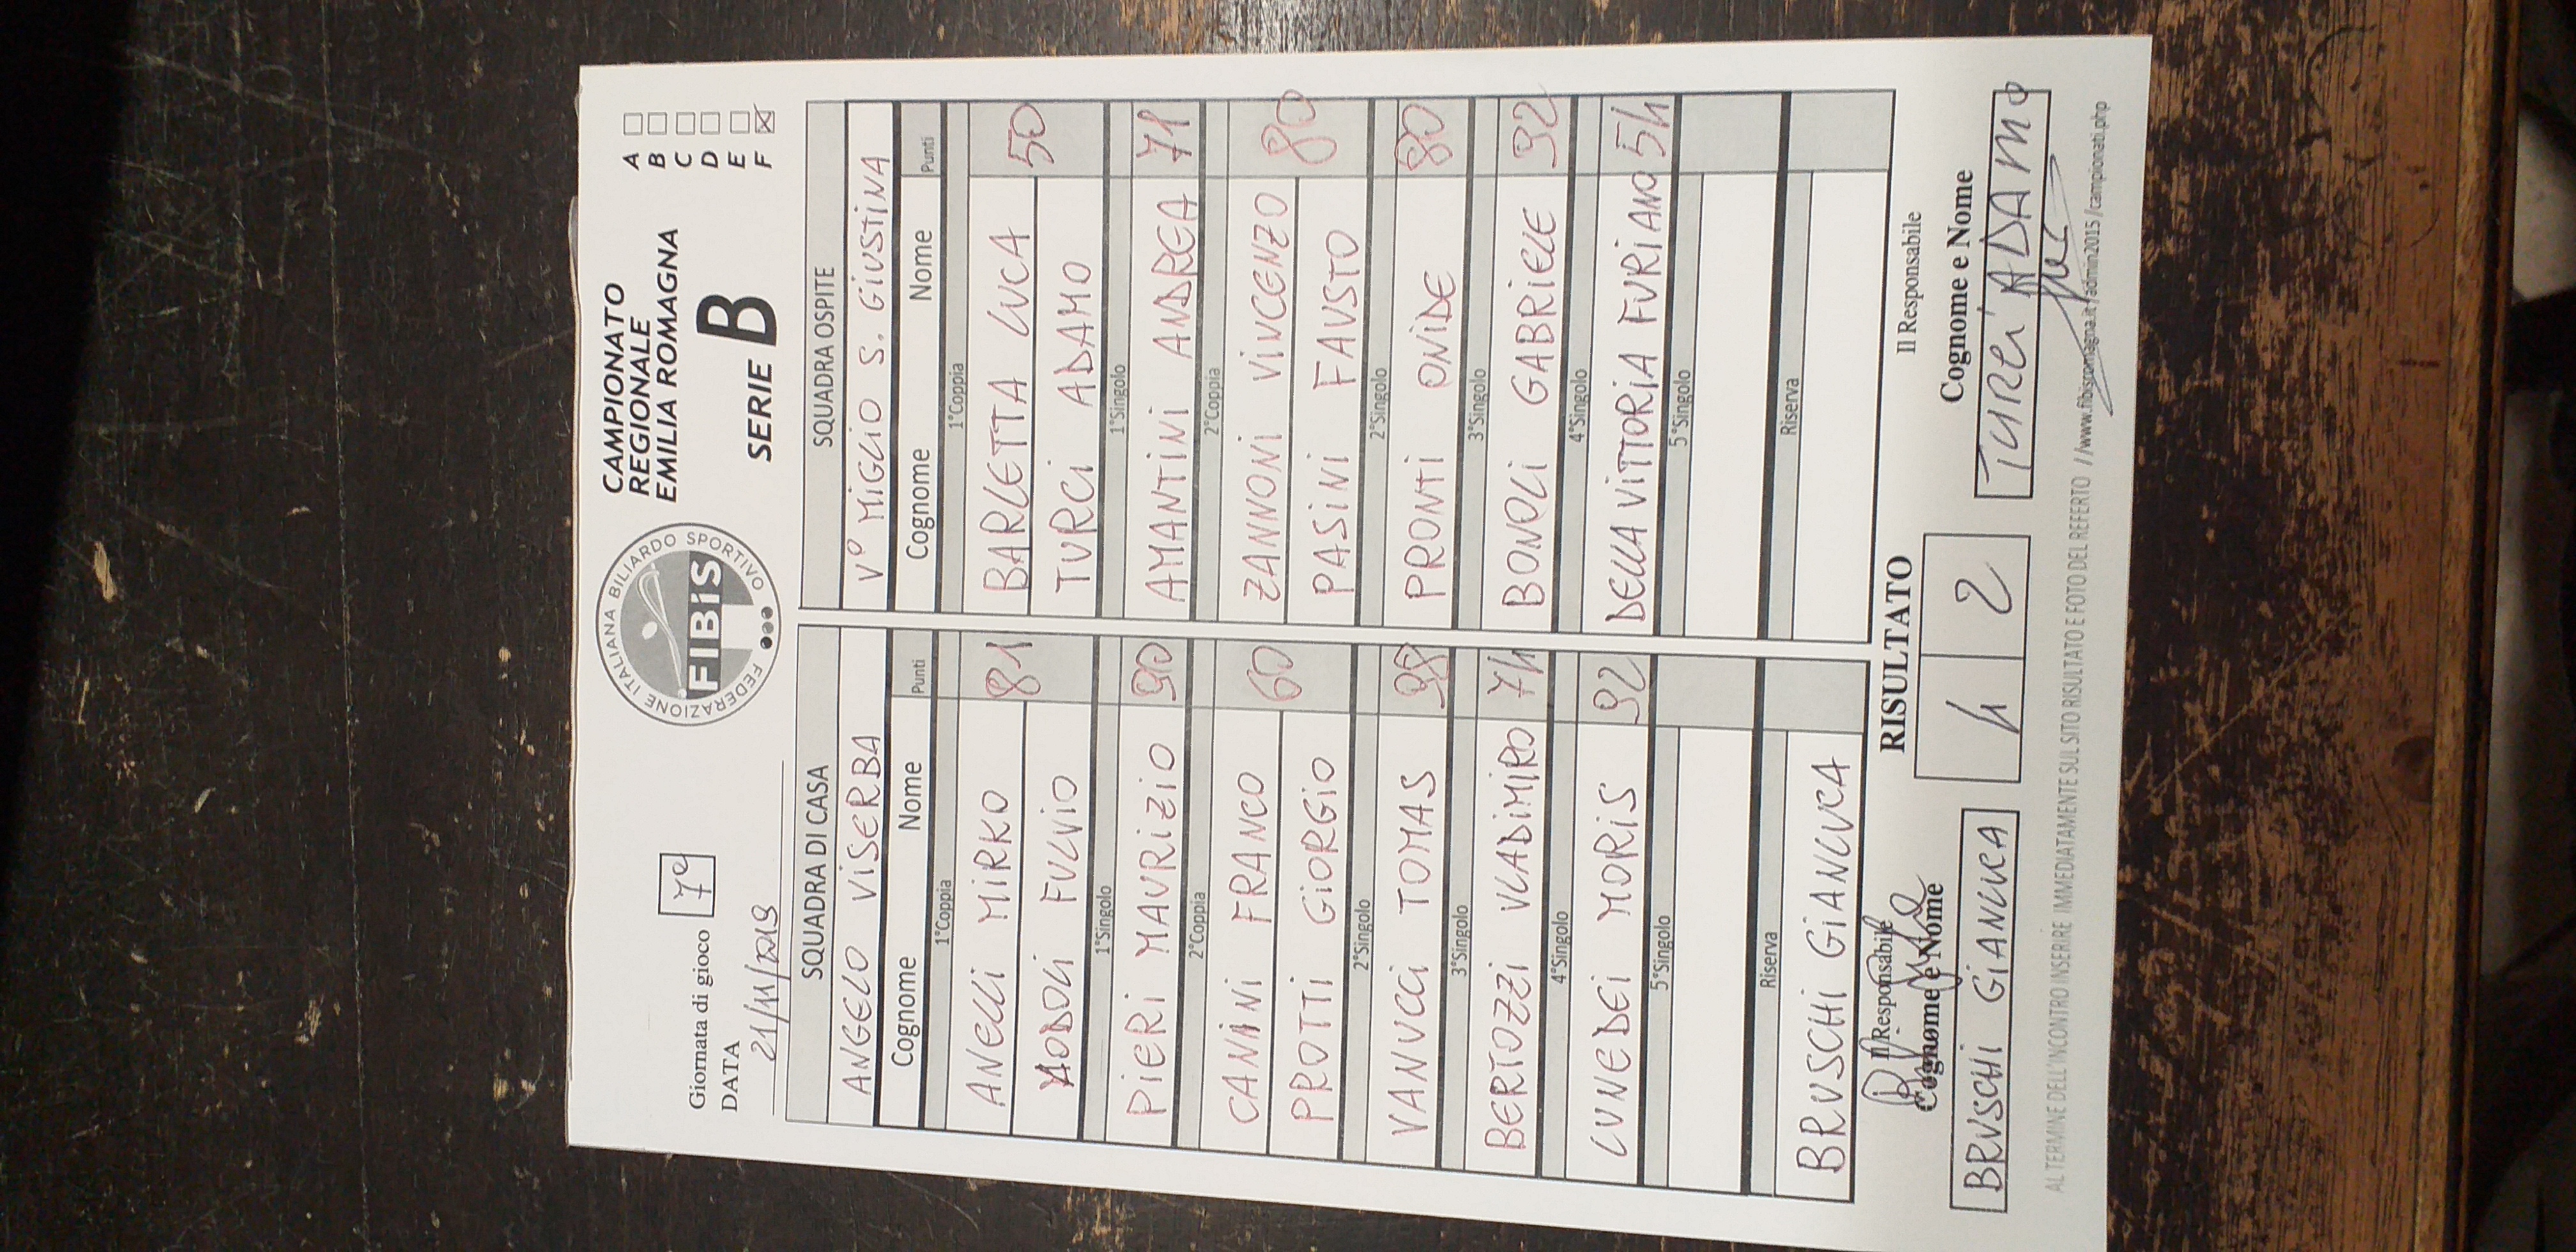 FEDERAZIONE ITALIANA BILIARDO SPORTIVO
FIBiS
CAMPIONATO
REGIONALE
EMILIA ROMAGNA
SERIE B
A
B
C
D
E
F
Giornata di gioco 7°
DATA
21/11/2019
SQUADRA DI CASA
ANGELO VISERBA
Cognome Nome Punti
1°Coppia
ANELLI MIRKO 81
FULVIO
1°Singolo
PIERI MAURIZIO 90
2°Coppia
CANINI FRANCO 60
PROTTI GIORGIO
2°Singolo
VANUCCI TOMAS 98
3°Singolo
BERTOZZI VLADIMIRO 74
4°Singolo
LUNEDEI MORIS 92
5°Singolo
Riserva
BRUSCHI GIANLUCA
SQUADRA OSPITE
V° MIGLIO S. GIUSTINA
Cognome Nome Punti
1°Coppia
BARLETTA LUCA 50
TURCI ADAMO
1°Singolo
AMANTINI ANDREA 71
2°Coppia
ZANNONI VINCENZO 80
PASINI FAUSTO
2°Singolo
PRONTI ONIDE 80
3°Singolo
BONOLI GABRIELE 92
4°Singolo
DELLA VITTORIA FURIANO 54
5°Singolo
Riserva
Il Responsabile
Cognome e Nome
BRUSCHI GIANLUCA
RISULTATO
4 2
Il Responsabile
Cognome e Nome
TURCI ADAMO
AL TERMINE DELL'INCONTRO INSERIRE IMMEDIATAMENTE SUL SITO RISULTATO E FOTO DEL REFERTO //www.fibisromagna.it/admin2015/campionati.php